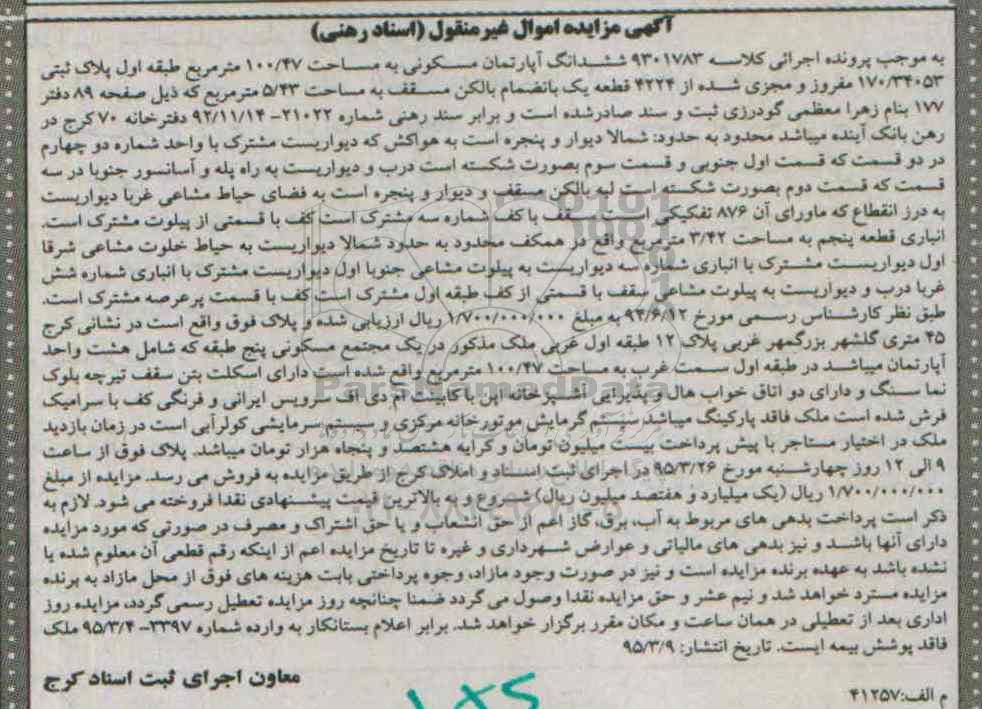 آگهی مزایده اموال غیر منقول (اسناد رهنی)
به موجب پرونده اجرائی کلاسه ۹۳۰۱۷۸۳ ششدانگ آپارتمان مسکونی به مساحت ۱۰۰/۴۷ مترمربع طبقه اول پلاک ثبتی
۱۷۰/۳۴۰۵۳ مفروز و مجزی شده از ۴۲۲۴ قطعه یک بانضمام بالکن مسقف به مساحت ۵/۴۳ مترمربع که ذیل صفحه ۸۹ دفتر
۱۷۷ بنام زهرا معظمی گودرزی ثبت و سند صادرشده است و برابر سند رهنی شماره ۲۱۰۲۲-۹۲/۱۱/۱۴ دفترخانه ۷۰ کرج در
رهن بانک آینده میباشد محدود به حدود: شمالا دیوار و پنجره است به هواکش که دیواریست مشترک با واحد شماره دو چهارم
در دو قسمت که قسمت اول جنوبی و قسمت سوم بصورت شکسته است درب و دیواریست به راه پله و آسانسور جنوبا در سه
قسمت که قسمت دوم بصورت شکسته است لبه بالکن مسقف و دیوار و پنجره است به فضای حیاط مشاعی غربا دیواریست
به درز انقطاع که ماورای آن ۸۷۶ تفکیکی است سقف با کف شماره سه مشترک است کف با قسمتی از پیلوت مشترک است.
انباری قطعه پنجم به مساحت ۳/۴۲ مترمربع واقع در همکف محدود به حدود شمالا دیواریست به حیاط خلوت مشاعی شرقا
اول دیواریست مشترک با انباری شماره سه دیواریست به پیلوت مشاعی جنوبا اول دیواریست مشترک با انباری شماره شش
غربا درب و دیواریست به پیلوت مشاعی سقف با قسمتی از کف طبقه اول مشترک است کف با قسمت پرعرصه مشترک است.
طبق نظر کارشناس رسمی مورخ ۹۴/۶/۱۲ به مبلغ ۱/۷۰۰/۰۰۰/۰۰۰ ریال ارزیابی شده و پلاک فوق واقع است در نشانی کرج
۴۵ متری گلشهر بزرگمهر غربی پلاک ۱۲ طبقه اول غربی ملک مذکور در یک مجتمع مسکونی پنج طبقه که شامل هشت واحد
آپارتمان میباشد در طبقه اول سمت غرب به مساحت ۱۰۰/۴۷ مترمربع واقع شده است دارای اسکلت بتن سقف تیرچه بلوک
نما سنگ و دارای دو اتاق خواب هال و پذیرایی آشپزخانه اپن با کابینت ام دی اف سرویس ایرانی و فرنگی کف با سرامیک
فرش شده است ملک فاقد پارکینگ میباشد سیستم گرمایش موتورخانه مرکزی و سیستم سرمایشی کولرآبی است در زمان بازدید
ملک در اختیار مستاجر با پیش پرداخت بیست میلیون تومان و کرایه هشتصد و پنجاه هزار تومان میباشد. پلاک فوق از ساعت
۹ الی ۱۲ روز چهارشنبه مورخ ۹۵/۳/۲۶ در اجرای ثبت اسناد و املاک کرج از طریق مزایده به فروش می رسد. مزایده از مبلغ
۱/۷۰۰/۰۰۰/۰۰۰ ریال (یک میلیارد و هفتصد میلیون ریال) شروع و به بالاترین قیمت پیشنهادی نقدا فروخته می شود. لازم به
ذکر است پرداخت بدهی های مربوط به آب، برق، گاز اعم از حق انشعاب و یا حق اشتراک و مصرف در صورتی که مورد مزایده
دارای آنها باشد و نیز بدهی های مالیاتی و عوارض شهرداری و غیره تا تاریخ مزایده اعم از اینکه رقم قطعی آن معلوم شده یا
نشده باشد به عهده برنده مزایده است و نیز در صورت وجود مازاد، وجوه پرداختی بابت هزینه های فوق از محل مازاد به برنده
مزایده مسترد خواهد شد و نیم عشر و حق مزایده نقدا وصول می گردد ضمنا چنانچه روز مزایده تعطیل رسمی گردد، مزایده روز
اداری بعد از تعطیلی در همان ساعت و مکان مقرر برگزار خواهد شد. برابر اعلام بستانکار به وارده شماره ۳۳۹۷-۹۵/۳/۴ ملک
فاقد پوشش بیمه ایست. تاریخ انتشار: ۹۵/۳/۹
معاون اجرای ثبت اسناد کرج
م الف:۴۱۲۵۷
ParsNamadData